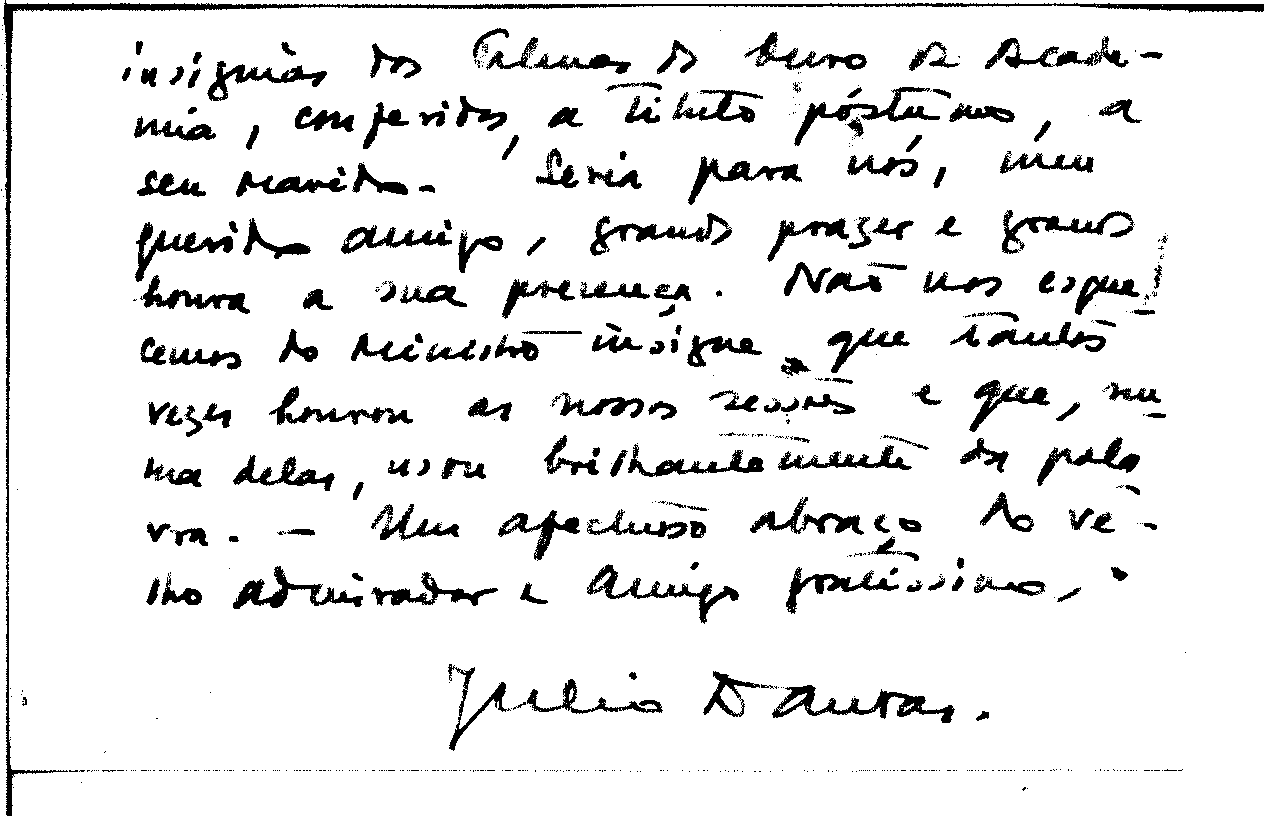 insignias das Palmas de Ouro da Acade-
mia, conferidas, a titulo póstumo, a
seu marido. Seria para nós, meu
querido amigo, grande prazer e grande
honra a sua presença. Não nos esque-
cemos do Ministro insigne que tantas
vezes honrou as nossas sessões e que, nu-
ma delas, usou brilhantemente da pala-
vra. — Um afectuoso abraço do ve-
lho admirador e amigo gratíssimo,
Julio Dantas.